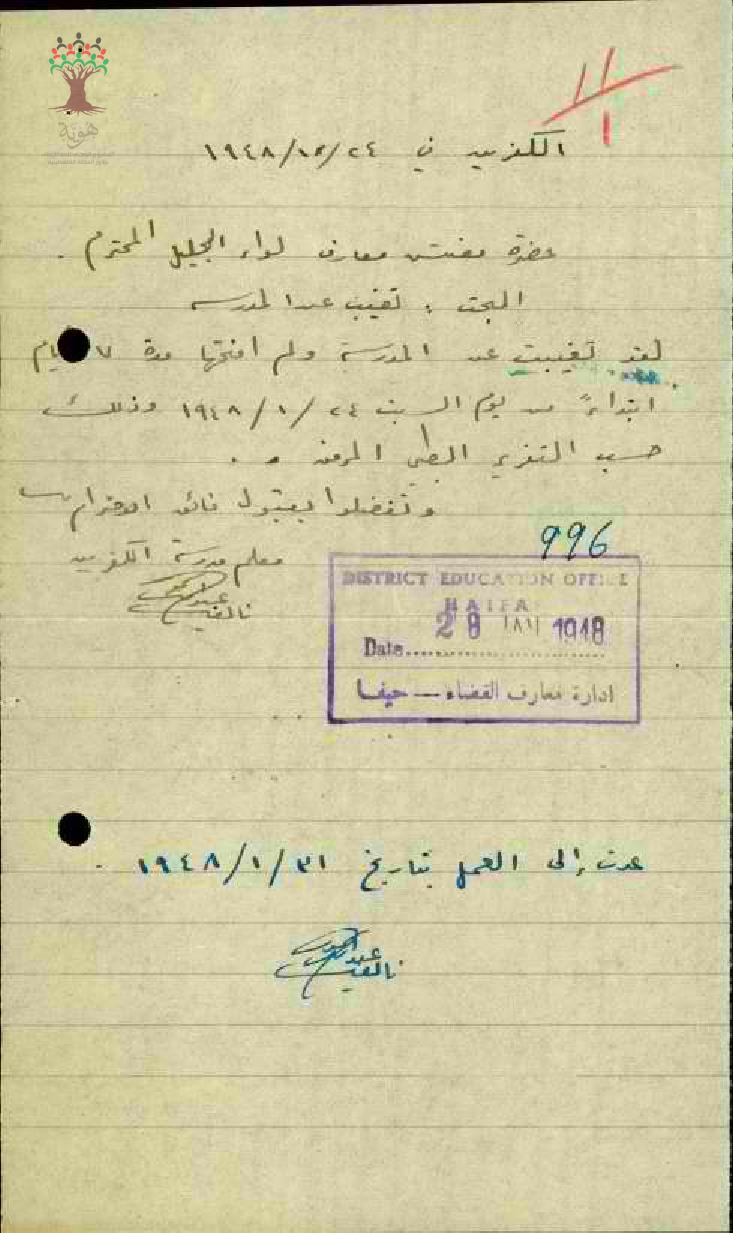 هوية
١١
١
الكفرين في ٢٤/١٢/١٩٤٨
حضرة مفتش معارف لواء الجليل المحترم .
البحث : تغيب عن المدرسه
لقد تغيبت عن المدرسة ولم افتحها مدة ٧ ايام
ابتداءً من يوم السبت ٢٤ / ١ / ١٩٤٨ وذلك
حسب التقرير الطبي المرفق .
وتفضلوا بقبول فائق الاحترام
996
معلم مدرسة الكفرين
DISTRICT EDUCATION OFFICE
HAIFA
28 JAN 1948
Date
ادارة معارف القضاء — حيفا
عدت إلى العمل بتاريخ ٣١ / ١ / ١٩٤٨ .